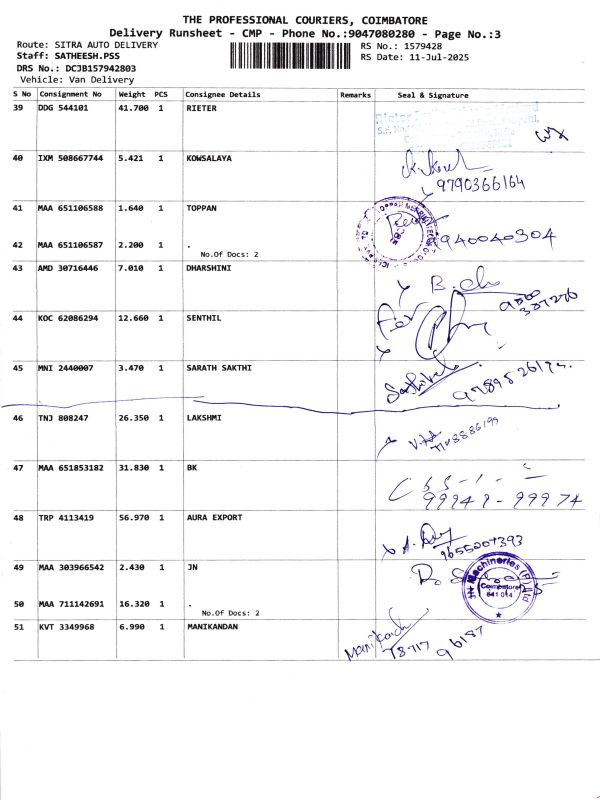 THE PROFESSIONAL COURIERS, COIMBATORE
Delivery Runsheet - CMP - Phone No.:9047080280 - Page No.:3
Route: SITRA AUTO DELIVERY
Staff: SATHEESH.PSS
DRS No.: DCJB157942803
Vehicle: Van Delivery
RS No.: 1579428
RS Date: 11-Jul-2025
S No Consignment No Weight PCS Consignee Details Remarks Seal & Signature
39 DDG 544101 41.700 1 RIETER
40 IXM 508667744 5.421 1 KOWSALAYA
9790366164
41 MAA 651106588 1.640 1 TOPPAN
42 MAA 651106587 2.200 1 .
No.Of Docs: 2
940040304
43 AMD 30716446 7.010 1 DHARSHINI
44 KOC 62086294 12.660 1 SENTHIL
45 MNI 2440007 3.470 1 SARATH SAKTHI
46 TNJ 808247 26.350 1 LAKSHMI
47 MAA 651853182 31.830 1 BK
99949-99974
48 TRP 4113419 56.970 1 AURA EXPORT
9655007393
49 MAA 303966542 2.430 1 JN
JN Machineries (P) Ltd
Coimbatore
641 014
50 MAA 711142691 16.320 1 .
No.Of Docs: 2
51 KVT 3349968 6.990 1 MANIKANDAN
Manikandan
78717 96187